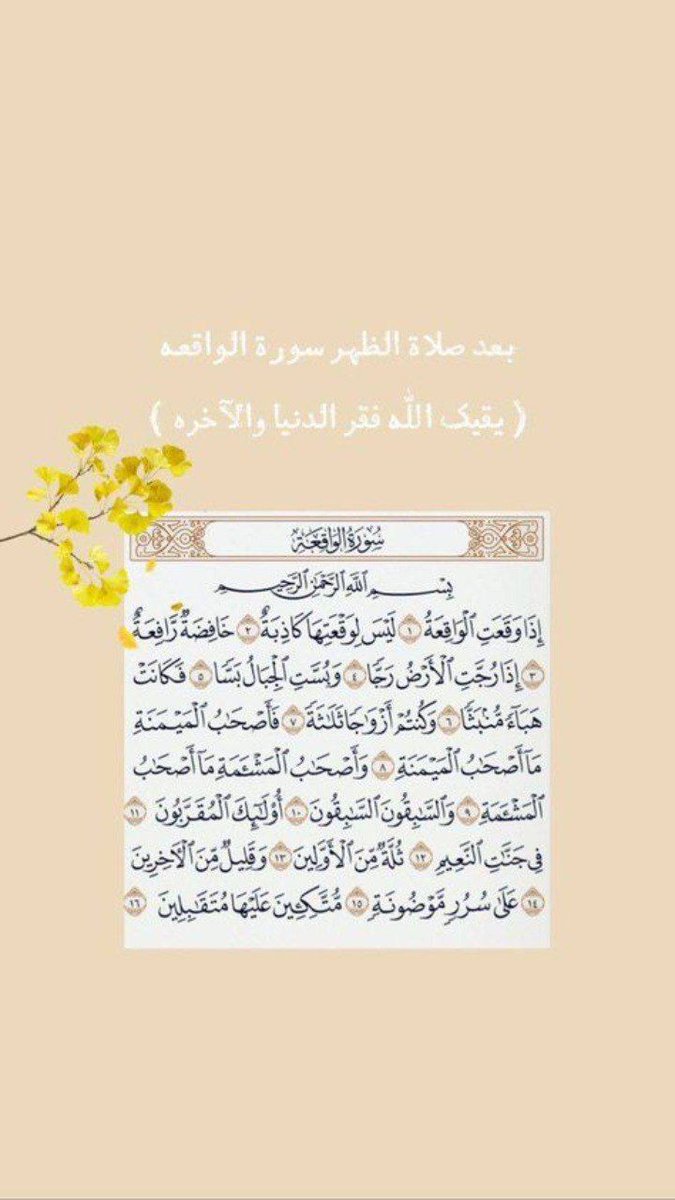 بعد صلاة الظهر سورة الواقعه
( يقيك الله فقر الدنيا والآخره )
سُورَةُ الوَاقِعَةِ
بِسْمِ ٱللَّهِ ٱلرَّحْمَٰنِ ٱلرَّحِيمِ
إِذَا وَقَعَتِ ٱلْوَاقِعَةُ ١ لَيْسَ لِوَقْعَتِهَا كَاذِبَةٌ ٢ خَافِضَةٌ رَّافِعَةٌ
٣ إِذَا رُجَّتِ ٱلْأَرْضُ رَجًّا ٤ وَبُسَّتِ ٱلْجِبَالُ بَسًّا ٥ فَكَانَتْ
هَبَآءً مُّنۢبَثًّا ٦ وَكُنتُمْ أَزْوَٰجًا ثَلَٰثَةً ٧ فَأَصْحَٰبُ ٱلْمَيْمَنَةِ
مَآ أَصْحَٰبُ ٱلْمَيْمَنَةِ ٨ وَأَصْحَٰبُ ٱلْمَشْـَٔمَةِ مَآ أَصْحَٰبُ
ٱلْمَشْـَٔمَةِ ٩ وَٱلسَّٰبِقُونَ ٱلسَّٰبِقُونَ ١٠ أُو۟لَٰٓئِكَ ٱلْمُقَرَّبُونَ ١١
فِى جَنَّٰتِ ٱلنَّعِيمِ ١٢ ثُلَّةٌ مِّنَ ٱلْأَوَّلِينَ ١٣ وَقَلِيلٌ مِّنَ ٱلْءَاخِرِينَ
١٤ عَلَىٰ سُرُرٍ مَّوْضُونَةٍ ١٥ مُّتَّكِـِٔينَ عَلَيْهَا مُتَقَٰبِلِينَ ١٦